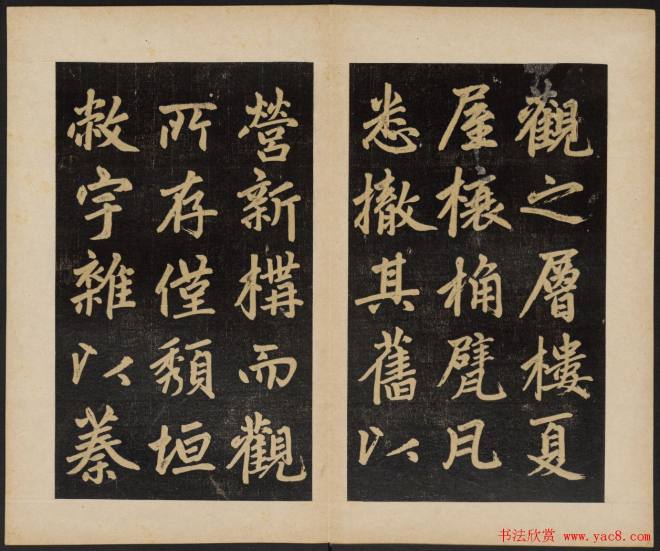 觀之層樓夏
屋榱桷甓瓦
悉撤其舊以
營新構而觀
所存僅頹垣
敝宇雜以蓁
书法欣赏 www.yac8.com